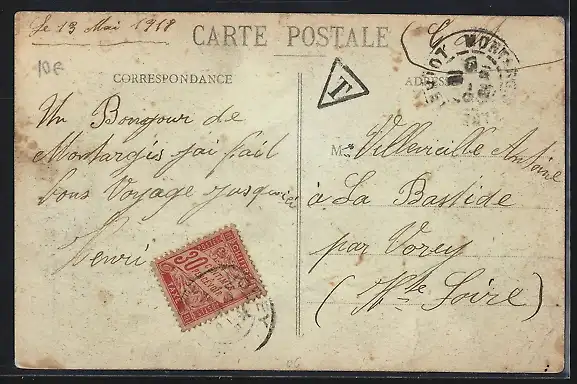 Le 13 Mai 1918
CARTE POSTALE
10 F
CORRESPONDANCE
T
ADRESSE
Un Bonjour de
Montargis j'ai fait
bons Voyage jusqu'ici
Henri
M Villevieille Antoine
à La Bastide
par Vorey
(Hte Loire)
30